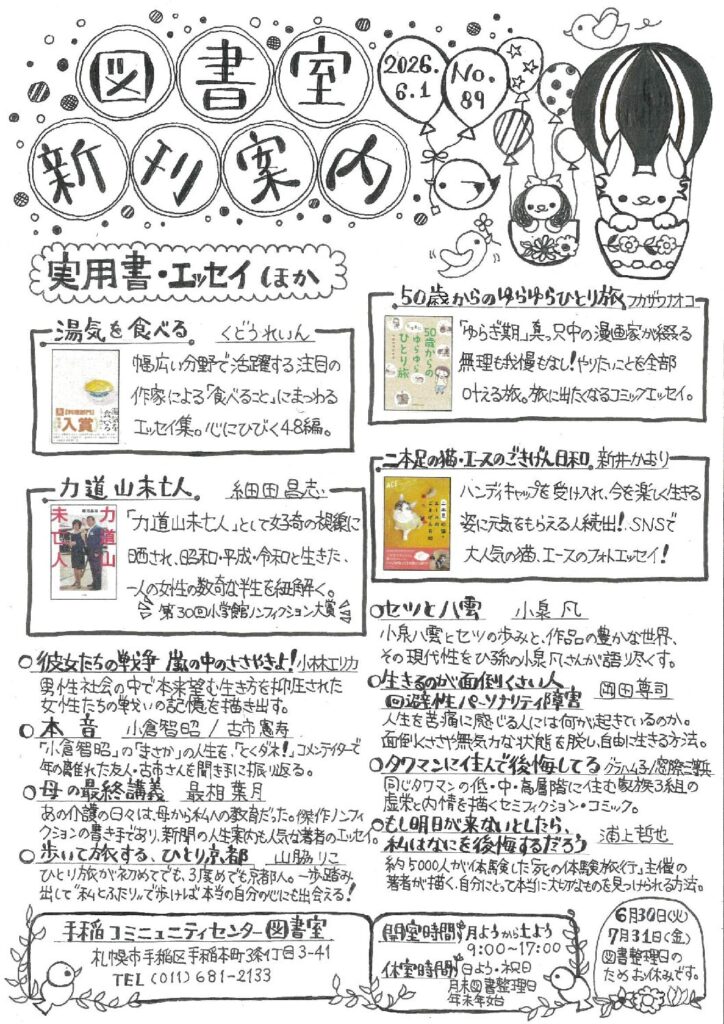 図書室
新刊案内
2026.
6.1
No.
89
実用書・エッセイ ほか
湯気を食べる くどうれいん
幅広い分野で活躍する注目の
作家による「食べること」にまつわる
エッセイ集。心にひびく48編。
入賞
力道山未亡人 細田昌志
「力道山未亡人」として好奇の視線に
晒され、昭和・平成・令和と生きた、
一人の女性の数奇な半生を紐解く。
第30回小学館ノンフィクション大賞
力道山
未亡人
○彼女たちの戦争 嵐の中のささやきよ! 小林エリカ
男性社会の中で本来望む生き方を抑圧された
女性たちの戦いの記憶を描き出す。
○本音 小倉智昭/古市憲寿
「小倉智昭」の「まさか」の人生を、「とくダネ!」コメンテイターで
年の離れた友人・古市さんを聞き手に振り返る。
○母の最終講義 最相葉月
あの介護の日々は、母から私への教育だった。傑作ノンフィ
クションの書き手であり、新聞の人生案内も人気な著者のエッセイ。
○歩いて旅する、ひとり京都 山脇りこ
ひとり旅が初めてでも、3度めでも京都人。一歩踏み
出して“私とふたり”で歩けば本当の自分の心にも出会える!
50歳からのゆらゆらひとり旅 フカザワナオコ
「ゆらぎ期」真っ只中の漫画家が綴る
無理も我慢もなし!やりたいことを全部
叶える旅。旅に出たくなるコミックエッセイ。
50歳からの
ゆらゆら
ひとり旅
二本足の猫・エースのごきげん日和。新井かおり
ハンディキャップを受け入れ、今を楽しく生きる
姿に元気をもらえる人続出!SNSで
大人気の猫、エースのフォトエッセイ!
ACE
○セツと八雲 小泉凡
小泉八雲とセツの歩みと、作品の豊かな世界、
その現代性をひ孫の小泉凡さんが語り尽くす。
○生きるのが面倒くさい人
回避性パーソナリティ障害 岡田尊司
人生を苦痛に感じる人には何が起きているのか。
面倒くささや無気力な状態を脱し、自由に生きる方法。
○タワマンに住んで後悔してる グラハム子/窓際三等兵
同じタワマンの低・中・高層階に住む家族3組の
虚栄と内情を描くセミフィクション・コミック。
○もし明日が来ないとしたら、
私はなにを後悔するだろう 浦上哲也
約5000人が体験した「死の体験旅行」主催の
著者が描く、自分にとって本当に大切なものを見つけられる方法。
手稲コミュニュニティセンター図書室
札幌市手稲区手稲本町3条1丁目3-41
TEL (011) 681-2133
開室時間 月ようから土よう
9:00〜17:00
休室時間 日よう・祝日
月末図書整理日
年末年始
6月30日(火)
7月31日(金)
図書整理日の
ためお休みです。